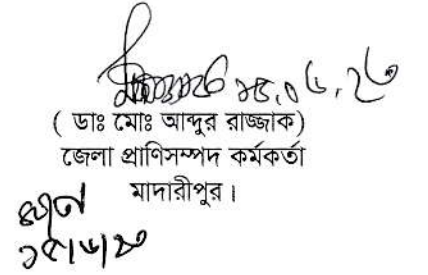 ১৫.০৬.২৩
( ডাঃ মোঃ আব্দুর রাজ্জাক)
জেলা প্রাণিসম্পদ কর্মকর্তা
মাদারীপুর।
১৫/৬/২৩